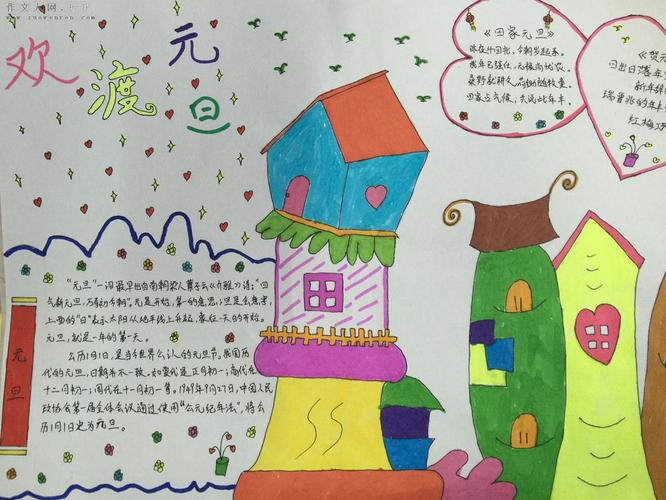 作文人网
欢渡元旦
《田家元旦》
昨夜斗回北，今朝岁起东。
我年已强仕，无禄尚忧农。
桑野就耕父，荷锄随牧童。
田家占气候，共说此年丰。
《贺元
日出日落年
新年
瑞雪兆的年
红梅
元旦
"元旦"一词最早出自南朝梁人萧子云《介雅》诗："四
气新元旦，万寿初今朝"。元是开始，第一的意思，旦是会意字，
上面的"日"表示太阳从地平线上升起，象征一天的开始。
元旦，就是一年的第一天。
公历1月1日，是当今世界公认的元旦节。我国历
代的元旦，日期并不一致。如夏代是正月初一；商代在
十二月初一；周代在十一月初一等。1949年9月27日，中国人民
政协会第一届全体会议通过使用"公元纪年法"，将公
历1月1日定为元旦。